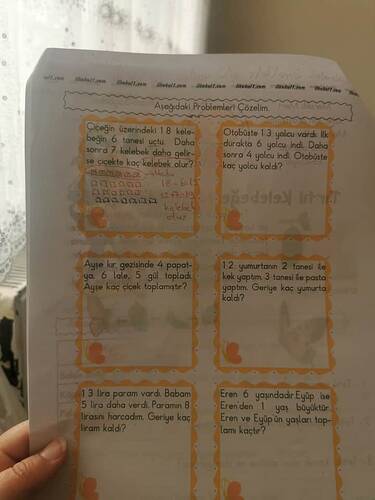 ilkokul1.com ilkokul1.com ilkokul1.com ilkokul1.com ilkokul1.com ilkokul1.com
Aşağıdaki Problemleri Çözelim.
Çiçeğin üzerindeki 18 kele-
beğin 6 tanesi uçtu. Daha
sonra 7 kelebek daha gelir-
se çiçekte kaç kelebek olur?
Otobüste 13 yolcu vardı. İlk
durakta 6 yolcu indi. Daha
sonra 4 yolcu indi. Otobüste
kaç yolcu kaldı?
Ayşe kır gezisinde 4 papat-
ya, 6 lale, 5 gül topladı.
Ayşe kaç çiçek toplamıştır?
12 yumurtanın 2 tanesi ile
kek yaptım. 3 tanesi ile pasta
yaptım. Geriye kaç yumurta
kaldı?
13 lira param vardı. Babam
5 lira daha verdi. Paramın 8
lirasını harcadım. Geriye kaç
liram kaldı?
Eren 6 yaşındadır. Eyüp ise
Eren'den 1 yaş büyüktür.
Eren ve Eyüp'ün yaşları top-
lamı kaçtır?